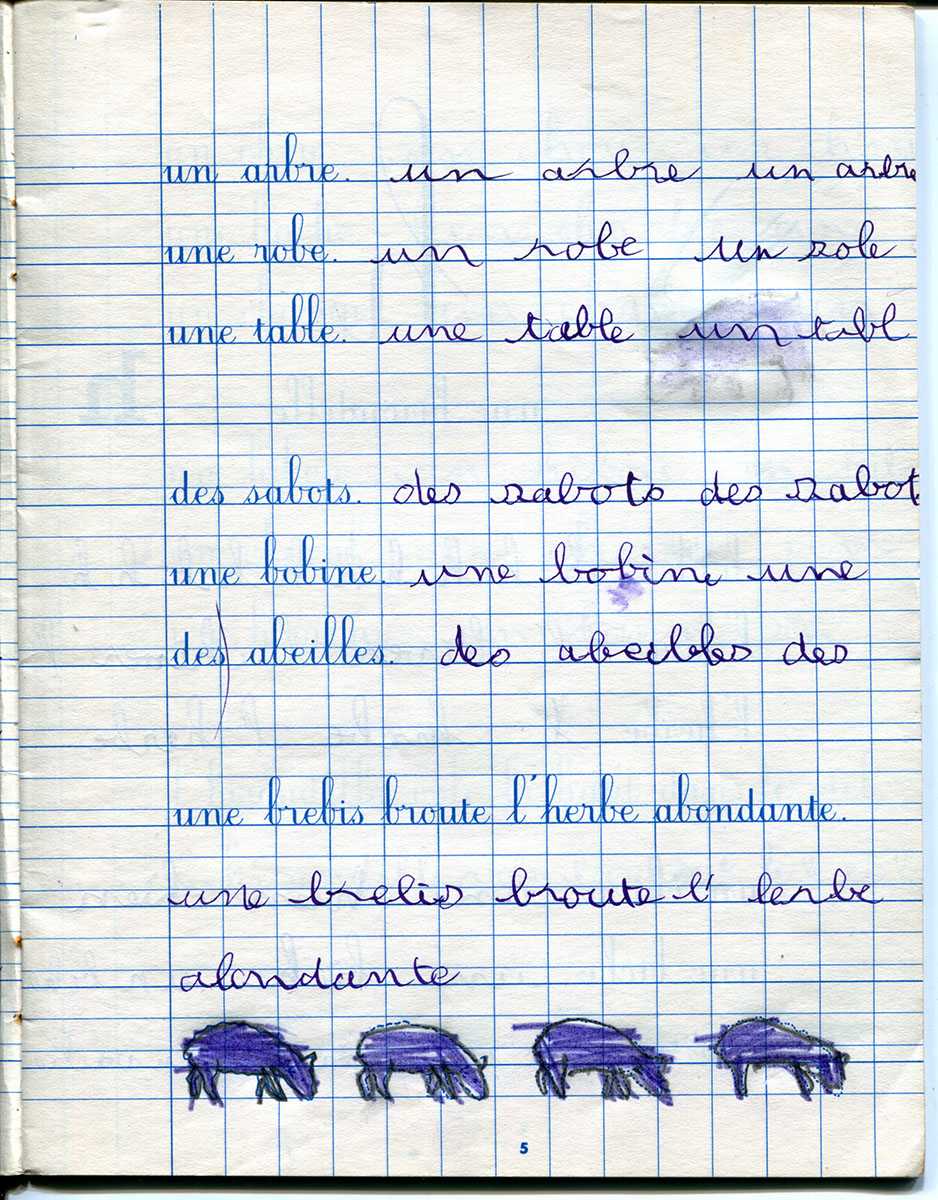 un arbre. un arbre un arbre
une robe. un robe un role
une table. une table un tabl
des sabots. des sabots des sabot
une bobine. une bobine une
des abeilles. des abeilles des
une brebis broute l'herbe abondante.
une brebis broute l' lerbe
alondante
5